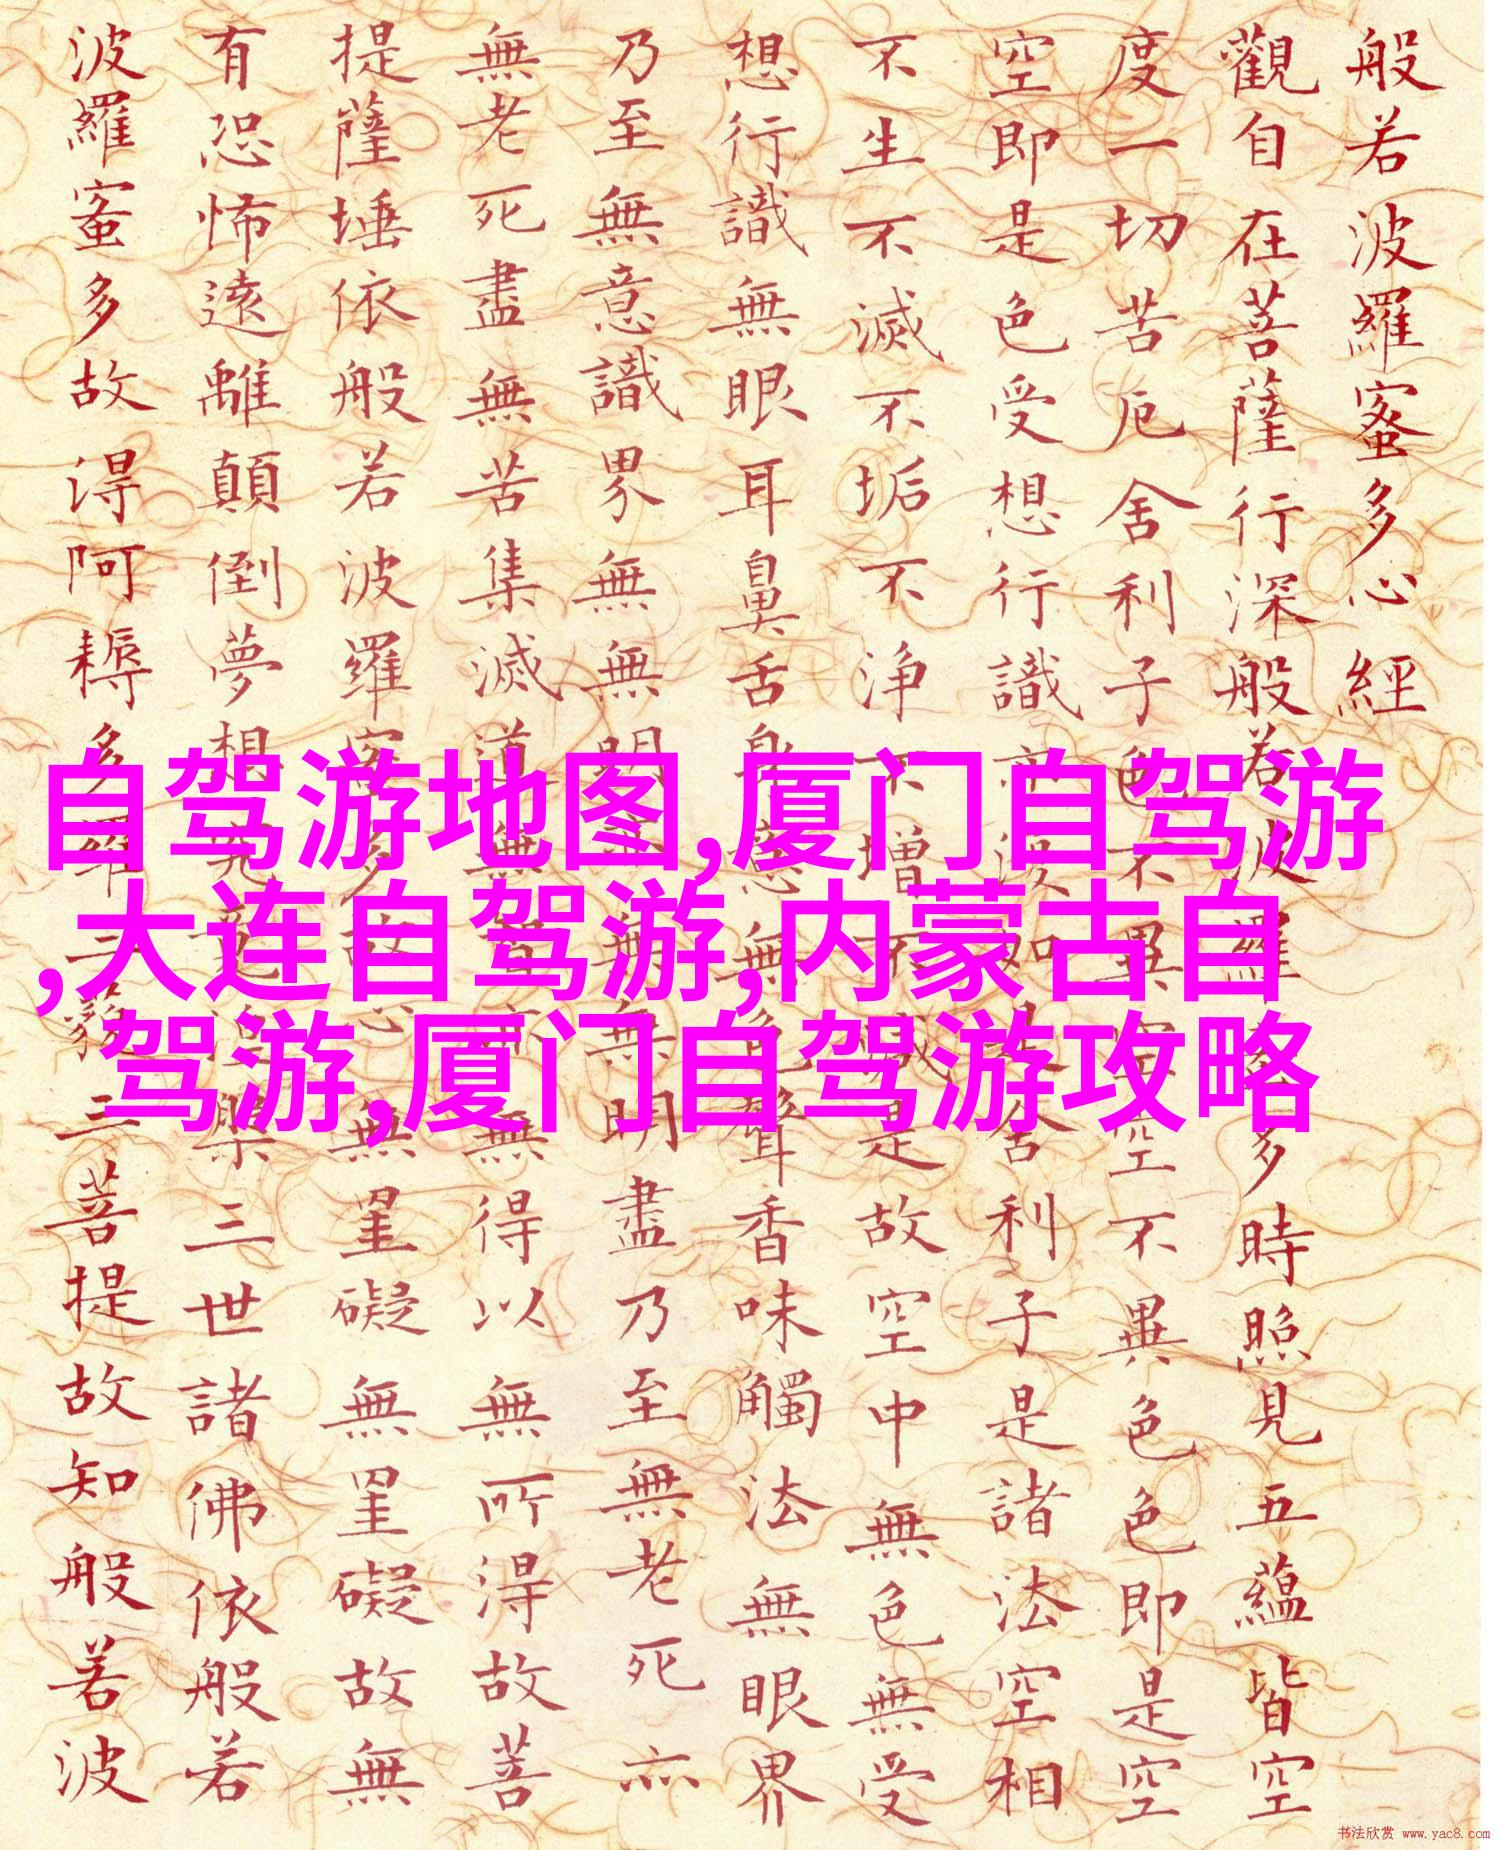 般若波羅蜜多心經
觀自在菩薩行深般若波羅蜜多時照見五蘊皆空
度一切苦厄舍利子色不異空空不異色色即是空
空即是色受想行識亦復如是舍利子是諸法空相
不生不滅不垢不浄不增不減是故空中無色無受
想行識無眼耳鼻舌身意無色聲香味觸法無眼界
乃至無意識界無無明亦無無明盡乃至無老死亦
無老死盡無苦集滅道無智亦無得以無所得故菩
提薩埵依般若波羅蜜多故心無罣礙無罣礙故無
有恐怖遠離顛倒夢想究竟涅槃三世諸佛依般若
波羅蜜多故得阿耨多羅三藐三菩提故知般若波
自驾游地图,厦门自驾游
,大连自驾游,内蒙古自
驾游,厦门自驾游攻略
书法欣赏 www.yac8.com